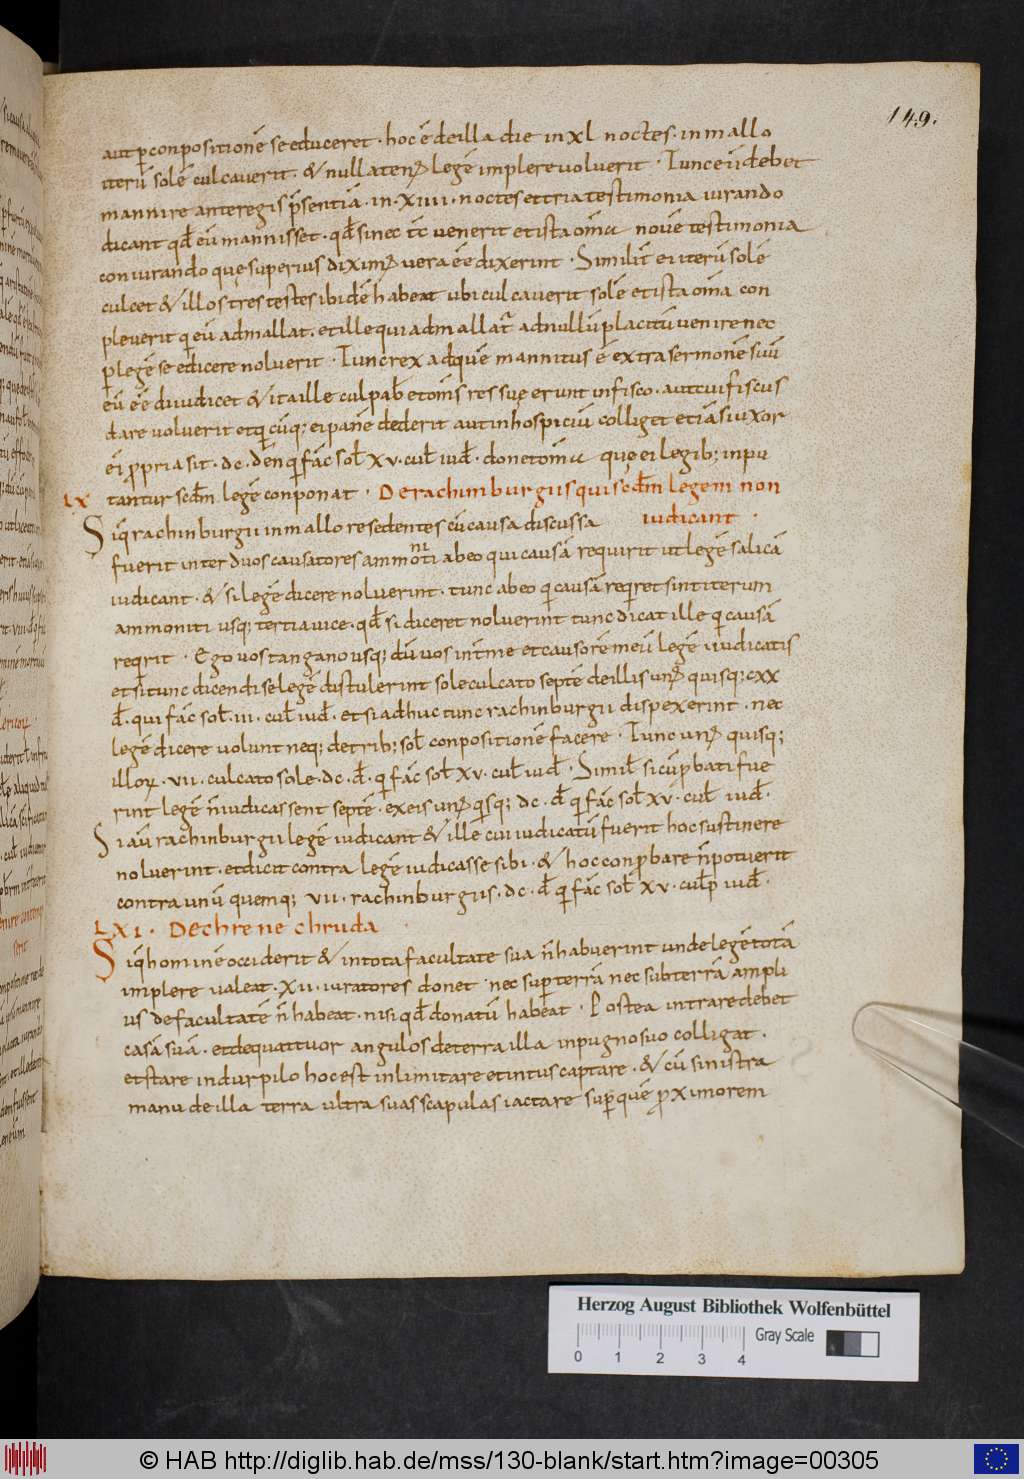 149.
aut p̱ conpositionē se educeret · hoc ē de illa die in xl noctes · in mallo
iterū solē culcauerit · & nullatenꝰ legē implere uoluerit · Tunc eū debet
mannire ante regis p̄sentiā · in · xiiii · noctes et tria testimonia iurando
dicant qđ eū mannisset · qđ si nec tc̄ venerit et ista om̄ia noue testimonia
coniurando quę superius diximꝰ uera eē dixerint · Similit̄ ei iterū solē
culcet & illos tres testes ibidē habeat ubi culcauerit solē et ista om̄a con
pleuerit qi eū admallat · et ille qui admallatᷣ ad nullū placitū uenire nec
p̱ legē se edicere noluerit · Tunc rex ad quē mannitus ē extra sermonē suū
eū eē diiudicet & ita ille culpab̄ et om̄s res suę erunt in fisco · aut cui fiscus
dare uoluerit et qicūq; ei panē dederit aut in hospiciū colliget etiā si uxor
ei propria sit · dc · den̄ qi fac̄ sol̄ xv · cul̄ iud̄ · donet om̄ia quę ei legib; inpu
LX tantur scd̄m legē conponat · De rachinburgiis qui scd̄m legem non
Siq̄ rachinburgii in mallo resedentes cū causa discussa iudicant ·
fuerit inter duos causatores ammoniti ab eo qui causā requirit ut legē salicā
iudicant · & si legē dicere noluerint · tunc ab eo qi causā reqiret sint iterum
ammoniti usq; tertia uice · qđ si diceret noluerint tunc dicat ille qi causā
reqirit · Ego uos tangano usq; dū uos int̄ me et causorē meū legē iudicatis
et si tunc dicendi se legē distulerint sole culcato septē de illis unꝰ quisq; cxx
đ · qui fac̄ sol̄ · iii · cul̄ iud̄ · et si adhuc tunc rachinburgii dispexerint · nec
legē dicere uolunt neq; de trib; sol̄ conpositionē facere · Tunc unꝰ quisq;
illoꝝ · vii · culcato sole · dc · đ · qi fac̄ sol̄ xv · cul̄ iud̄ · Simil̄ sicut p̱bati fue
rint legē n̄ iudicassent septē · ex eis unꝰ qisq; dc · đ qi fac̄ sol̄ xv · cul̄ iud̄ ·
Si aū rachinburgii legē iudicant & ille cui iudicatū fuerit hoc sustinere
noluerint · et dicit contra legē iudicasse sibi · & hoc conp̱bare n̄ potuerit
contra unū quemq; vii · rachinburgus · dc · đ qi fac̄ sol̄ xv · culp̄ iud̄ ·
LXI · De chrenechruda
Siq̄ hominē occiderit & in tota facultate sua n̄ habuerint unde legē totā
implere ualeat · xii · iuratores donet nec sup̱ terrā nec subterrā ampli
us de facultatē n̄ habeat · nisi qđ donatū habeat · Postea intrare debet
casā suā · et de quattuor angulos de terra illa in pugno suo colligat ·
et stare in durpilo hoc est in limitare et intus captare · & cū sinistra
manu de illa terra ultra suas scapulas iactare sup̱ quē proximorem
Herzog August Bibliothek Wolfenbüttel
Gray Scale
0 1 2 3 4
© HAB http://diglib.hab.de/mss/130-blank/start.htm?image=00305